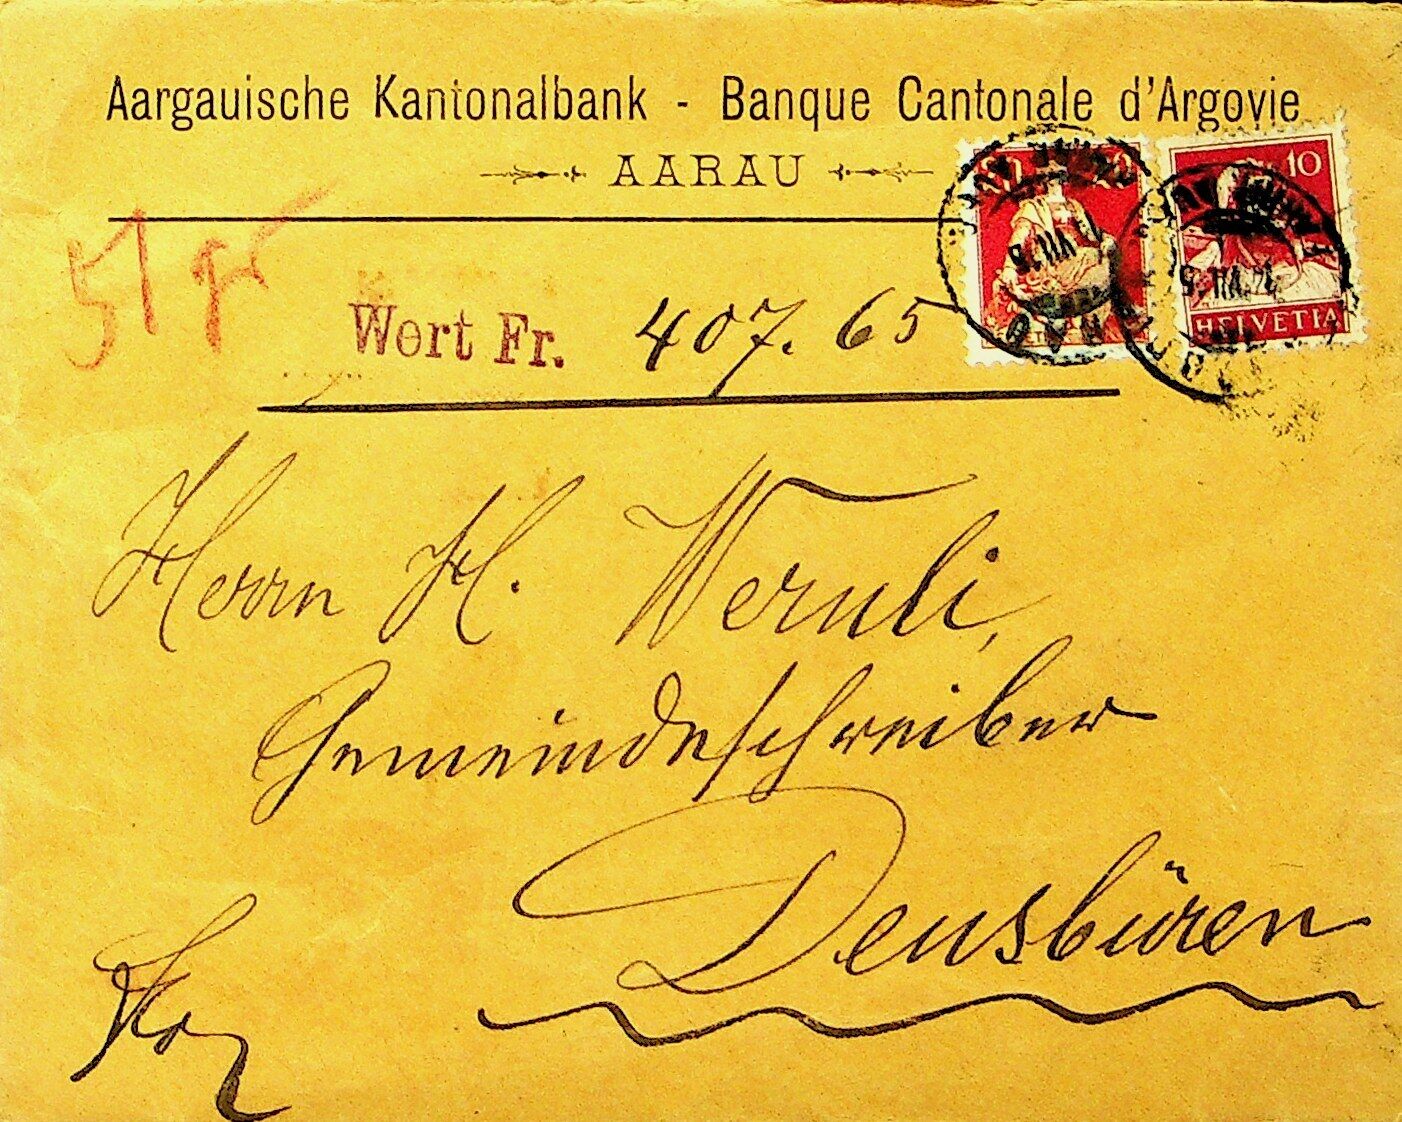 Aargauische Kantonalbank - Banque Cantonale d'Argovie
AARAU
51 gr
Wert Fr. 407.65
10
HELVETIA
Herrn H. Wernli,
Gemeindeschreiber
Densbüren